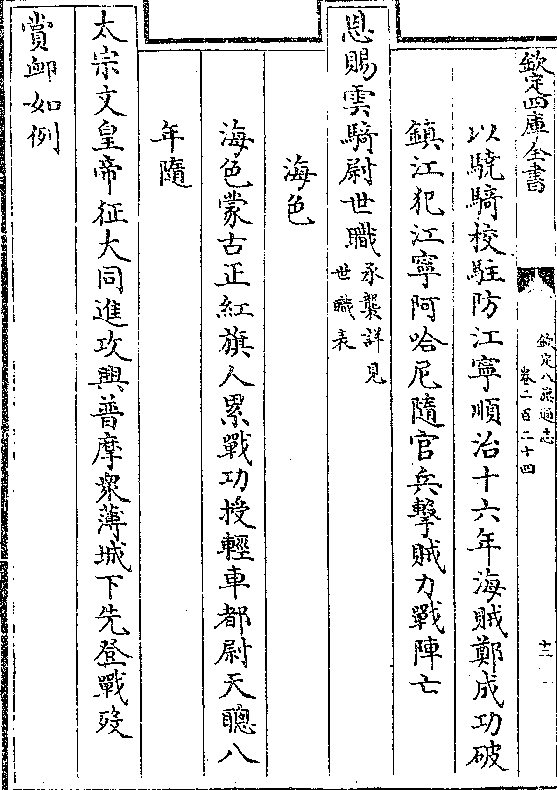 欽定四庫全書
欽定八旗通志
卷二百二十四
十二
以驍騎校駐防江寧順治十六年海賊鄭成功破
鎮江犯江寧阿哈尼隨官兵擊賊力戰陣亡
恩賜雲騎尉世職承襲詳見
世職表
海色
海色蒙古正紅旗人累戰功授輕車都尉天聰八
年隨
太宗文皇帝征大同進攻興普摩衆薄城下先登戰歿
賞䘏如例